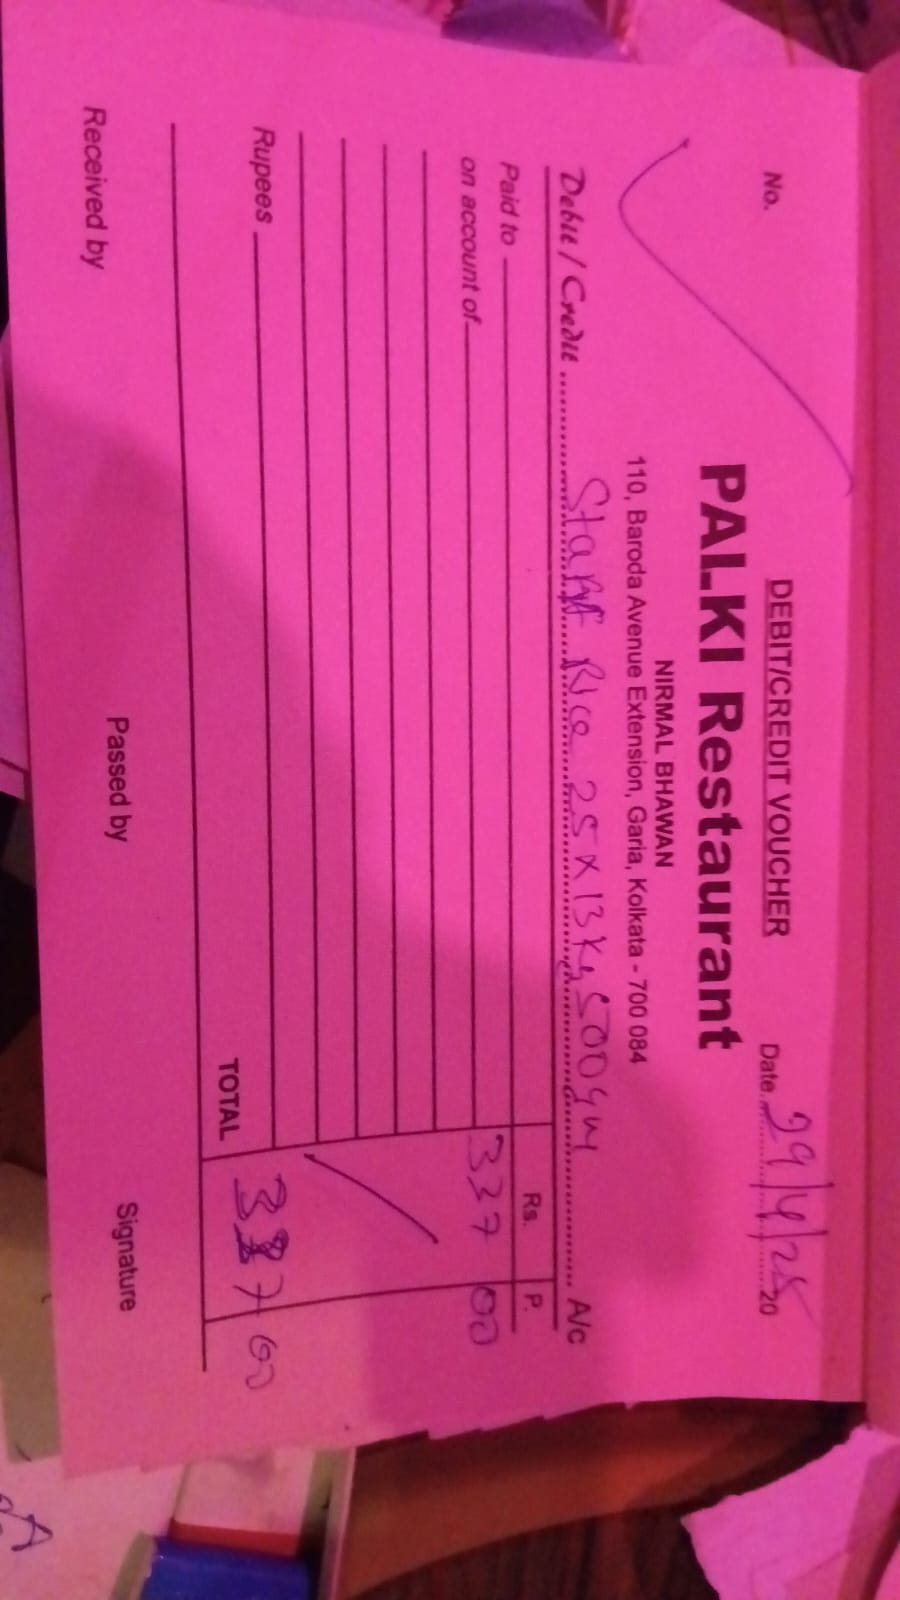 DEBIT/CREDIT VOUCHER
No. Date 29/4/25 20
PALKI Restaurant
NIRMAL BHAWAN
110, Baroda Avenue Extension, Garia, Kolkata - 700 084
Debit / Credit Staff Rice 25 x 13 Kg 500 gm A/c
Rs. P.
Paid to
on account of 337 00
Rupees
TOTAL 337 00
Received by Passed by Signature